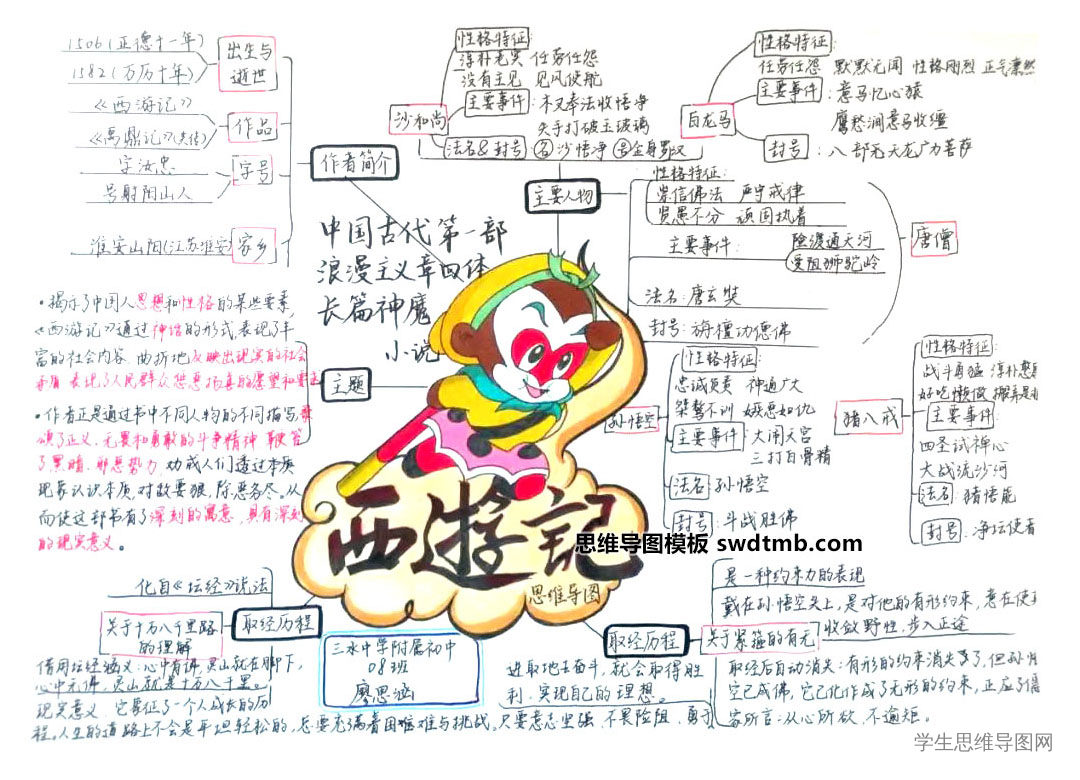 1506(正德十一年)
1582(万历十年)
出生与
逝世
《西游记》
《禹鼎记》(失传)
作品
字汝忠
号射阳山人
字号
淮安山阳(江苏淮安)
家乡
作者简介
沙和尚
性格特征:
淳朴老实 任劳任怨
没有主见 见风使舵
主要事件:木叉奉法收悟净
失手打破玉玻璃
法名&封号 名 沙悟净 号 金身罗汉
白龙马
性格特征:
任劳任怨 默默无闻 性格刚烈 正气凛然
主要事件:意马忆心猿
鹰愁涧意马收缰
封号:八部天龙广力菩萨
主要人物
性格特征:
崇信佛法 严守戒律
贤愚不分 顽固执着
主要事件: 险渡通天河
受阻狮驼岭
法名:唐玄奘
封号:旃檀功德佛
唐僧
中国古代第一部
浪漫主义章回体
长篇神魔
小说
主题
·揭示了中国人思想和性格的某些要素,
《西游记》通过神话的形式,表现了丰
富的社会内容 曲折地反映出现实的社会
矛盾 表现了人民群众惩恶扬善的愿望和要
·作者正是通过书中不同人物的不同描写
颂了正义、无畏和勇敢的斗争精神 鞭笞
了黑暗、邪恶势力 劝戒人们透过本质
现象认识本质,对敌要狠,除恶务尽。从
而使这部书有了深刻的寓意,具有深刻
的现实意义。
孙悟空
性格特征:
忠诚负责 神通广大
桀骜不训 嫉恶如仇
主要事件:大闹天宫
三打白骨精
法名:孙悟空
封号:斗战胜佛
猪八戒
性格特征:
战斗勇猛 淳朴憨
好吃懒做 搬弄是
主要事件:
四圣试禅心
大战流沙河
法名:猪悟能
封号:净坛使者
西游記
思维导图
思维导图模板 swdtmb.com
化自《坛经》说法
关于十万八千里路
的理解
取经历程
借用坛经涵义:心中有佛,灵山就在脚下,
心中无佛,灵山就是十万八千里。
现实意义:它象征了一个人成长的历
程。人生的道路上不会是平坦轻松的,总要充满着困难与挑战。只要意志坚强,不畏险阻,勇于
进取地去奋斗,就会取得胜
利,实现自己的理想。
三水中学附属初中
08班
廖思涵
取经历程
关于紧箍的有无
是一种约束力的表现
戴在孙悟空头上,是对他的有形约束,意在使
收敛野性,步入正途
取经后自动消失:有形的约束消失了,但孙悟
空已成佛,它已化作成了无形的约束,正应了儒
家所言:从心所欲,不逾矩。
学生思维导图网